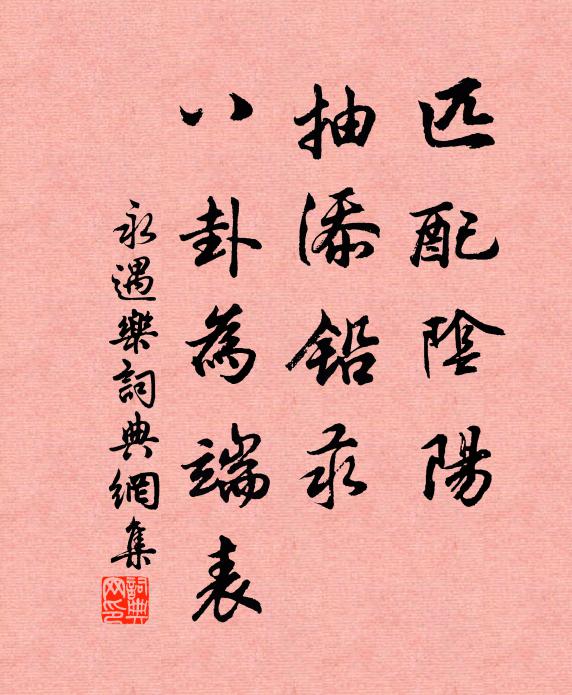 匹配陰陽
抽添鉛汞
八卦為端表
永遇樂詞典網集
詞典
网印